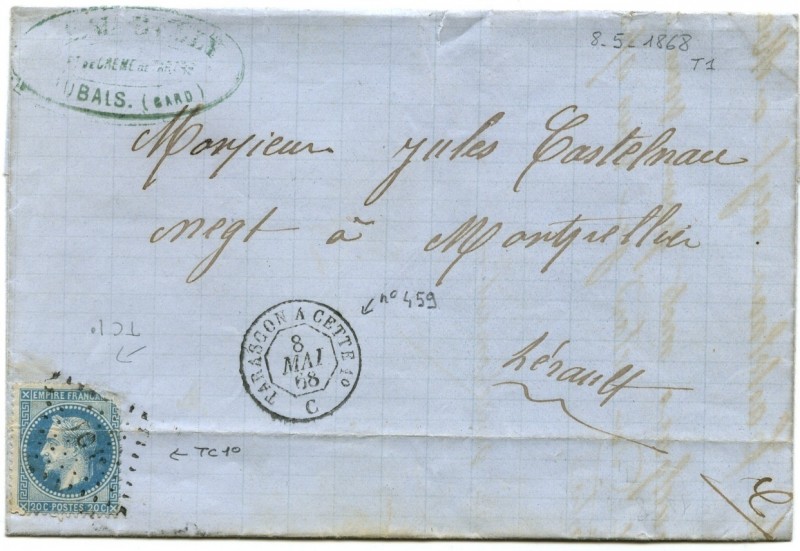 ET DE CRÈME DE TARTRE
UBAIS. (GARD)
8-5-1868
T1
Monsieur Jules Castelnau
negt à Montpellier
hérault
n° 459
TARASCON A CETTE 1°
8
MAI
68
C
TC1°
TC1°
EMPIRE FRANC
20C POSTES 20C